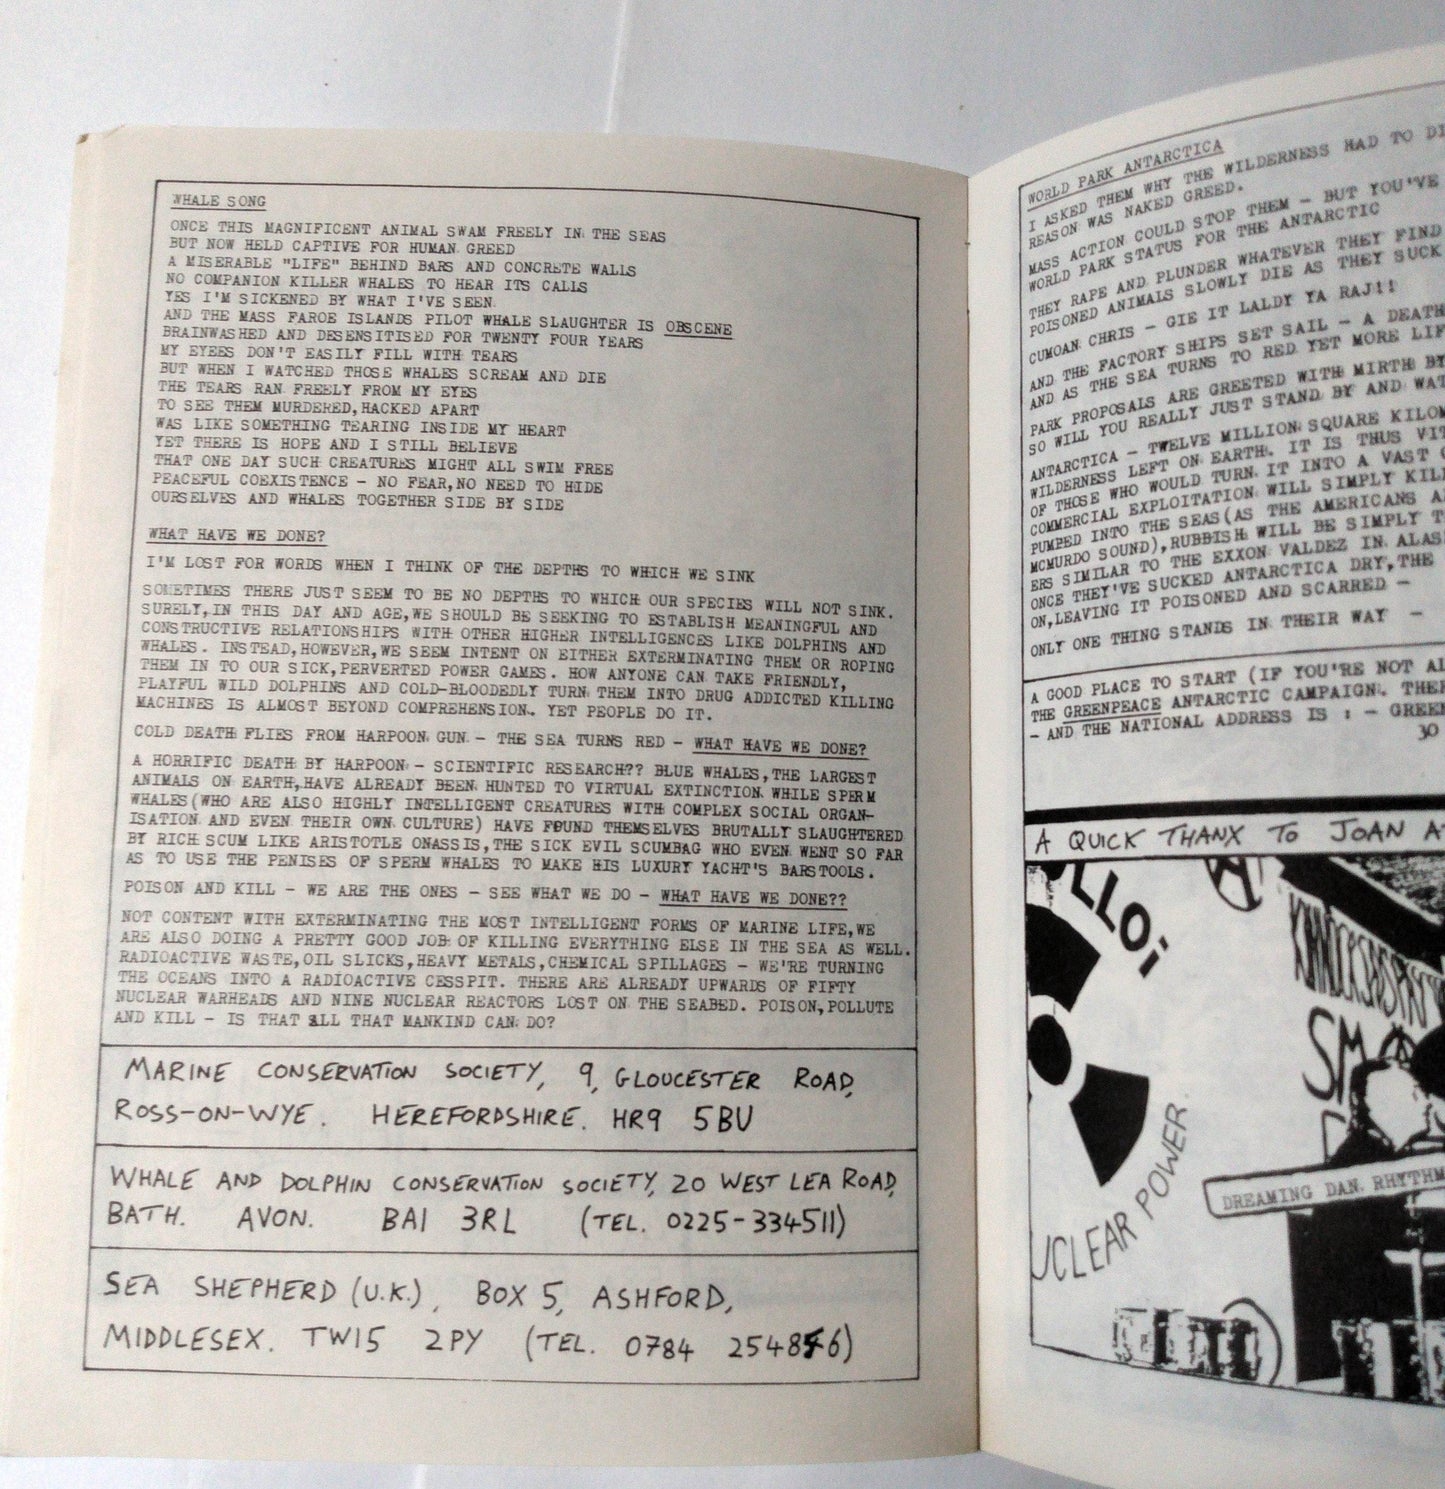 WHALE SONG
ONCE THIS MAGNIFICENT ANIMAL SWAM FREELY IN THE SEAS
BUT NOW HELD CAPTIVE FOR HUMAN GREED
A MISERABLE "LIFE" BEHIND BARS AND CONCRETE WALLS
NO COMPANION KILLER WHALES TO HEAR ITS CALLS
YES I'M SICKENED BY WHAT I'VE SEEN
AND THE MASS FAROE ISLANDS PILOT WHALE SLAUGHTER IS OBSCENE
BRAINWASHED AND DESENSITISED FOR TWENTY FOUR YEARS
MY EYEES DON'T EASILY FILL WITH TEARS
BUT WHEN I WATCHED THOSE WHALES SCREAM AND DIE
THE TEARS RAN FREELY FROM MY EYES
TO SEE THEM MURDERED, HACKED APART
WAS LIKE SOMETHING TEARING INSIDE MY HEART
YET THERE IS HOPE AND I STILL BELIEVE
THAT ONE DAY SUCH CREATURES MIGHT ALL SWIM FREE
PEACEFUL COEXISTENCE - NO FEAR, NO NEED TO HIDE
OURSELVES AND WHALES TOGETHER SIDE BY SIDE
WHAT HAVE WE DONE?
I'M LOST FOR WORDS WHEN I THINK OF THE DEPTHS TO WHICH WE SINK
SOMETIMES THERE JUST SEEM TO BE NO DEPTHS TO WHICH OUR SPECIES WILL NOT SINK.
SURELY, IN THIS DAY AND AGE, WE SHOULD BE SEEKING TO ESTABLISH MEANINGFUL AND
CONSTRUCTIVE RELATIONSHIPS WITH OTHER HIGHER INTELLIGENCES LIKE DOLPHINS AND
WHALES. INSTEAD, HOWEVER, WE SEEM INTENT ON EITHER EXTERMINATING THEM OR ROPING
THEM IN TO OUR SICK, PERVERTED POWER GAMES. HOW ANYONE CAN TAKE FRIENDLY,
PLAYFUL WILD DOLPHINS AND COLD-BLOODEDLY TURN THEM INTO DRUG ADDICTED KILLING
MACHINES IS ALMOST BEYOND COMPREHENSION. YET PEOPLE DO IT.
COLD DEATH FLIES FROM HARPOON GUN - THE SEA TURNS RED - WHAT HAVE WE DONE?
A HORRIFIC DEATH BY HARPOON - SCIENTIFIC RESEARCH?? BLUE WHALES, THE LARGEST
ANIMALS ON EARTH, HAVE ALREADY BEEN HUNTED TO VIRTUAL EXTINCTION WHILE SPERM
WHALES (WHO ARE ALSO HIGHLY INTELLIGENT CREATURES WITH COMPLEX SOCIAL ORGAN-
ISATION AND EVEN THEIR OWN CULTURE) HAVE FOUND THEMSELVES BRUTALLY SLAUGHTERED
BY RICH SCUM LIKE ARISTOTLE ONASSIS, THE SICK EVIL SCUMBAG WHO EVEN WENT SO FAR
AS TO USE THE PENISES OF SPERM WHALES TO MAKE HIS LUXURY YACHT'S BARSTOOLS.
POISON AND KILL - WE ARE THE ONES - SEE WHAT WE DO - WHAT HAVE WE DONE??
NOT CONTENT WITH EXTERMINATING THE MOST INTELLIGENT FORMS OF MARINE LIFE, WE
ARE ALSO DOING A PRETTY GOOD JOB OF KILLING EVERYTHING ELSE IN THE SEA AS WELL.
RADIOACTIVE WASTE, OIL SLICKS, HEAVY METALS, CHEMICAL SPILLAGES - WE'RE TURNING
THE OCEANS INTO A RADIOACTIVE CESSPIT. THERE ARE ALREADY UPWARDS OF FIFTY
NUCLEAR WARHEADS AND NINE NUCLEAR REACTORS LOST ON THE SEABED. POISON, POLLUTE
AND KILL - IS THAT ALL THAT MANKIND CAN DO?
MARINE CONSERVATION SOCIETY, 9, GLOUCESTER ROAD,
ROSS-ON-WYE. HEREFORDSHIRE. HR9 5BU
WHALE AND DOLPHIN CONSERVATION SOCIETY, 20 WEST LEA ROAD,
BATH. AVON. BA1 3RL (TEL. 0225-334511)
SEA SHEPHERD (U.K.), BOX 5, ASHFORD,
MIDDLESEX. TW15 2PY (TEL. 0784
WORLD PARK ANTARCTICA
I ASKED THEM WHY THE WILDERNESS HAD TO
REASON WAS NAKED GREED.
MASS ACTION COULD STOP THEM - BUT YOU'VE
WORLD PARK STATUS FOR THE ANTARCTIC
THEY RAPE AND PLUNDER WHATEVER THEY FIND
POISONED ANIMALS SLOWLY DIE AS THEY SUCK
CUMOAN CHRIS - GIE IT LALDY YA RAJ!!
AND THE FACTORY SHIPS SET SAIL - A DEATH
AND AS THE SEA TURNS TO RED YET MORE
PARK PROPOSALS ARE GREETED WITH MIRTH BY
SO WILL YOU REALLY JUST STAND BY AND
ANTARCTICA - TWELVE MILLION SQUARE
WILDERNESS LEFT ON EARTH. IT IS THUS
OF THOSE WHO WOULD TURN IT INTO A VAST
COMMERCIAL EXPLOITATION WILL SIMPLY KILL
PUMPED INTO THE SEAS (AS THE AMERICANS
MCMURDO SOUND), RUBBISH WILL BE SIMPLY
ERS SIMILAR TO THE EXXON VALDEZ IN
ONCE THEY'VE SUCKED ANTARCTICA DRY, THE
ON, LEAVING IT POISONED AND SCARRED -
ONLY ONE THING STANDS IN THEIR WAY -
A GOOD PLACE TO START (IF YOU'RE NOT
THE GREENPEACE ANTARCTIC CAMPAIGN.
- AND THE NATIONAL ADDRESS IS : -
30
A QUICK THANX TO JOAN
LLO!
UCLEAR POWER.
DREAMING DAN